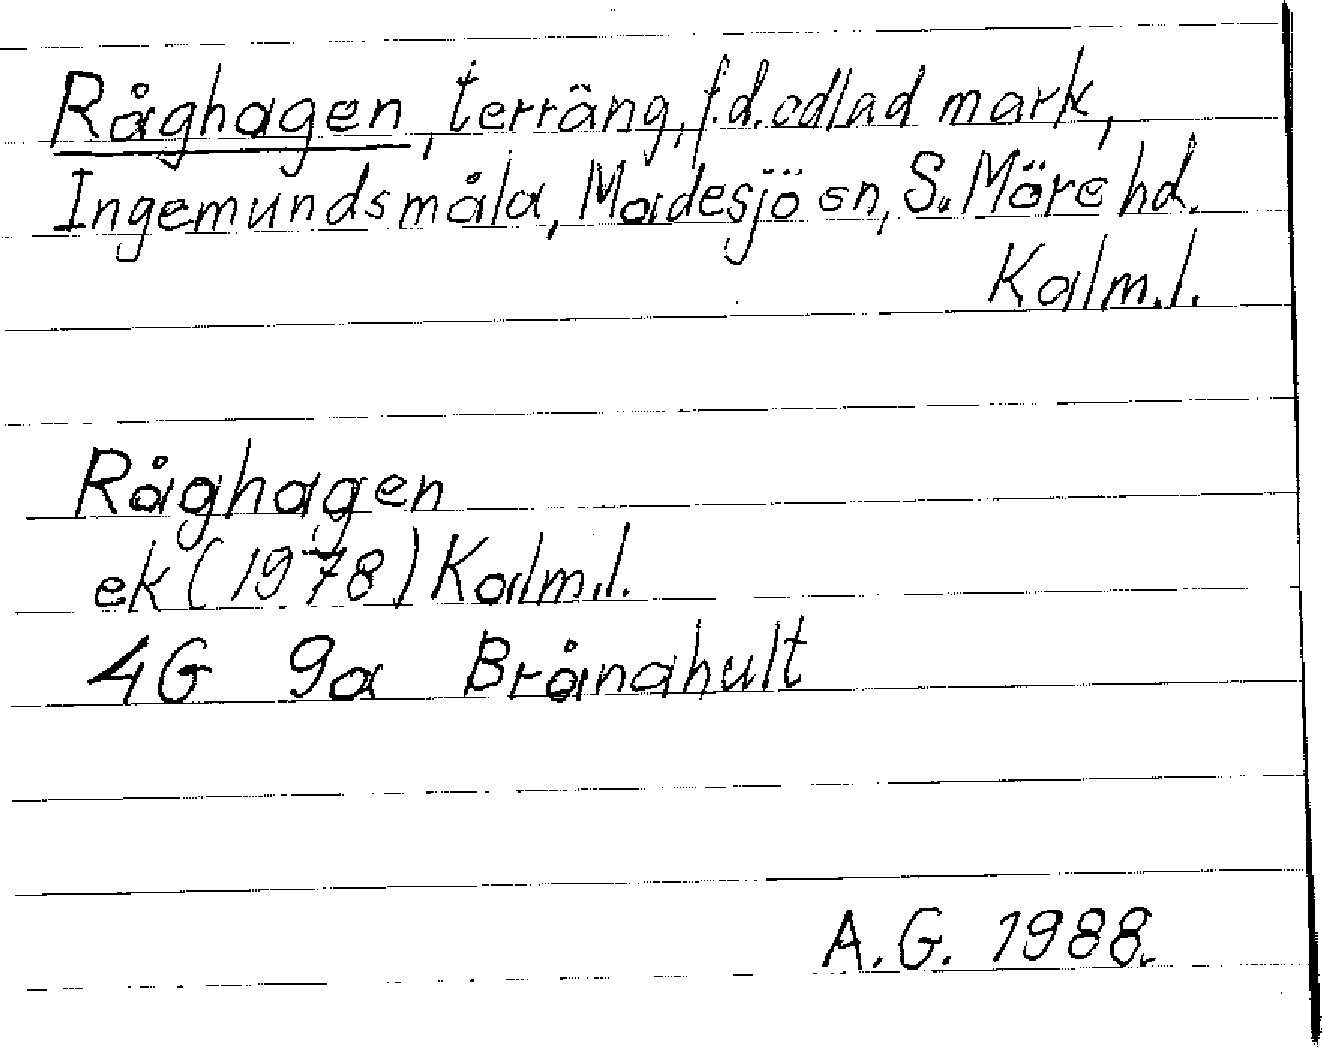 Råghagen, terräng, f.d. odlad mark,
Ingemundsmåla, Madesjö sn, S. Möre hd.
Kalm.l.
Råghagen
ek (1978) Kalm.l.
4G 9a Brånahult
A.G. 1988.